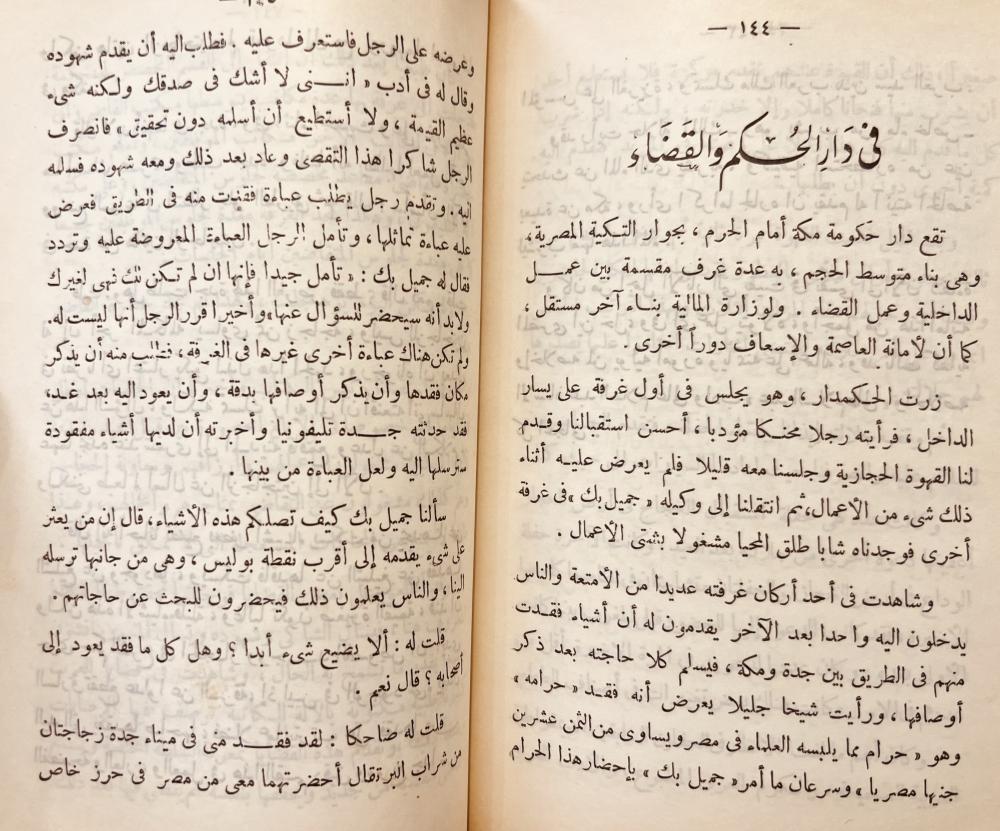 — ١٤٤ —
فى دَارِ الحُكم وَالقَضَاء
تقع دار حكومة مكة أمام الحرم ، بجوار التكية المصرية ،
وهى بناء متوسط الحجم ، به عدة غرف مقسمة بين عمل
الداخلية وعمل القضاء . ولوزارة المالية بناء آخر مستقل ،
كما أن لأمانة العاصمة والإسعاف دوراً أخرى .
زرت الحكمدار ، وهو يجلس فى أول غرفة على يسار
الداخل ، فرأيته رجلا محنكا مؤدبا ، أحسن استقبالنا وقدم
لنا القهوة الحجازية وجلسنا معه قليلا فلم يعرض عليه أثناء
ذلك شىء من الأعمال، ثم انتقلنا إلى وكيله « جميل بك » فى غرفة
أخرى فوجدناه شابا طلق المحيا مشغولا بشتى الأعمال .
وشاهدت فى أحد أركان غرفته عديدا من الأمتعة والناس
يدخلون اليه واحدا بعد الآخر يقدمون له أن أشياء فقدت
منهم فى الطريق بين جدة ومكة ، فيسلم كلا حاجته بعد ذكر
أوصافها ، ورأيت شيخا جليلا يعرض أنه فقد « حرامه »
وهو « حرام مما يلبسه العلماء فى مصر ويساوى من الثمن عشرين
جنيها مصريا » وسرعان ما أمر « جميل بك » بإحضار هذا الحرام
وعرضه على الرجل فاستعرف عليه . فطلب اليه أن يقدم شهوده
وقال له فى أدب « اننى لا أشك فى صدقك ولكنه شىء
عظيم القيمة ، ولا أستطيع أن أسلمه دون تحقيق » فانصرف
الرجل شاكرا هذا التقصى وعاد بعد ذلك ومعه شهوده فسلمه
اليه . وتقدم رجل يطلب عباءة فقدت منه فى الطريق فعرض
عليه عباءة تماثلها ، وتأمل الرجل العباءة المعروضة عليه وتردد
فقال له جميل بك : « تأمل جيدا فإنها ان لم تكن لك فهى لغيرك
ولابد أنه سيحضر للسؤال عنها » وأخيرا قرر الرجل أنها ليست له.
ولم تكن هناك عباءة أخرى غيرها فى الغرفة ، فطلب منه أن يذكر
مكان فقدها وأن يذكر أوصافها بدقة ، وأن يعود اليه بعد غد،
فقد حدثته جدة تليفونيا وأخبرته أن لديها أشياء مفقودة
سترسلها اليه ولعل العباءة من بينها .
سألنا جميل بك كيف تصلكم هذه الأشياء، قال إن من يعثر
على شىء يقدمه إلى أقرب نقطة بوليس ، وهى من جانبها ترسله
الينا ، والناس يعلمون ذلك فيحضرون للبحث عن حاجاتهم .
قلت له : ألا يضيع شىء أبدا ؟ وهل كل ما فقد يعود إلى
أصحابه ؟ قال نعم .
قلت له ضاحكا : لقد فقد منى فى ميناء جدة زجاجتان
من شراب البرتقال أحضرتهما معى من مصر فى حرز خاص